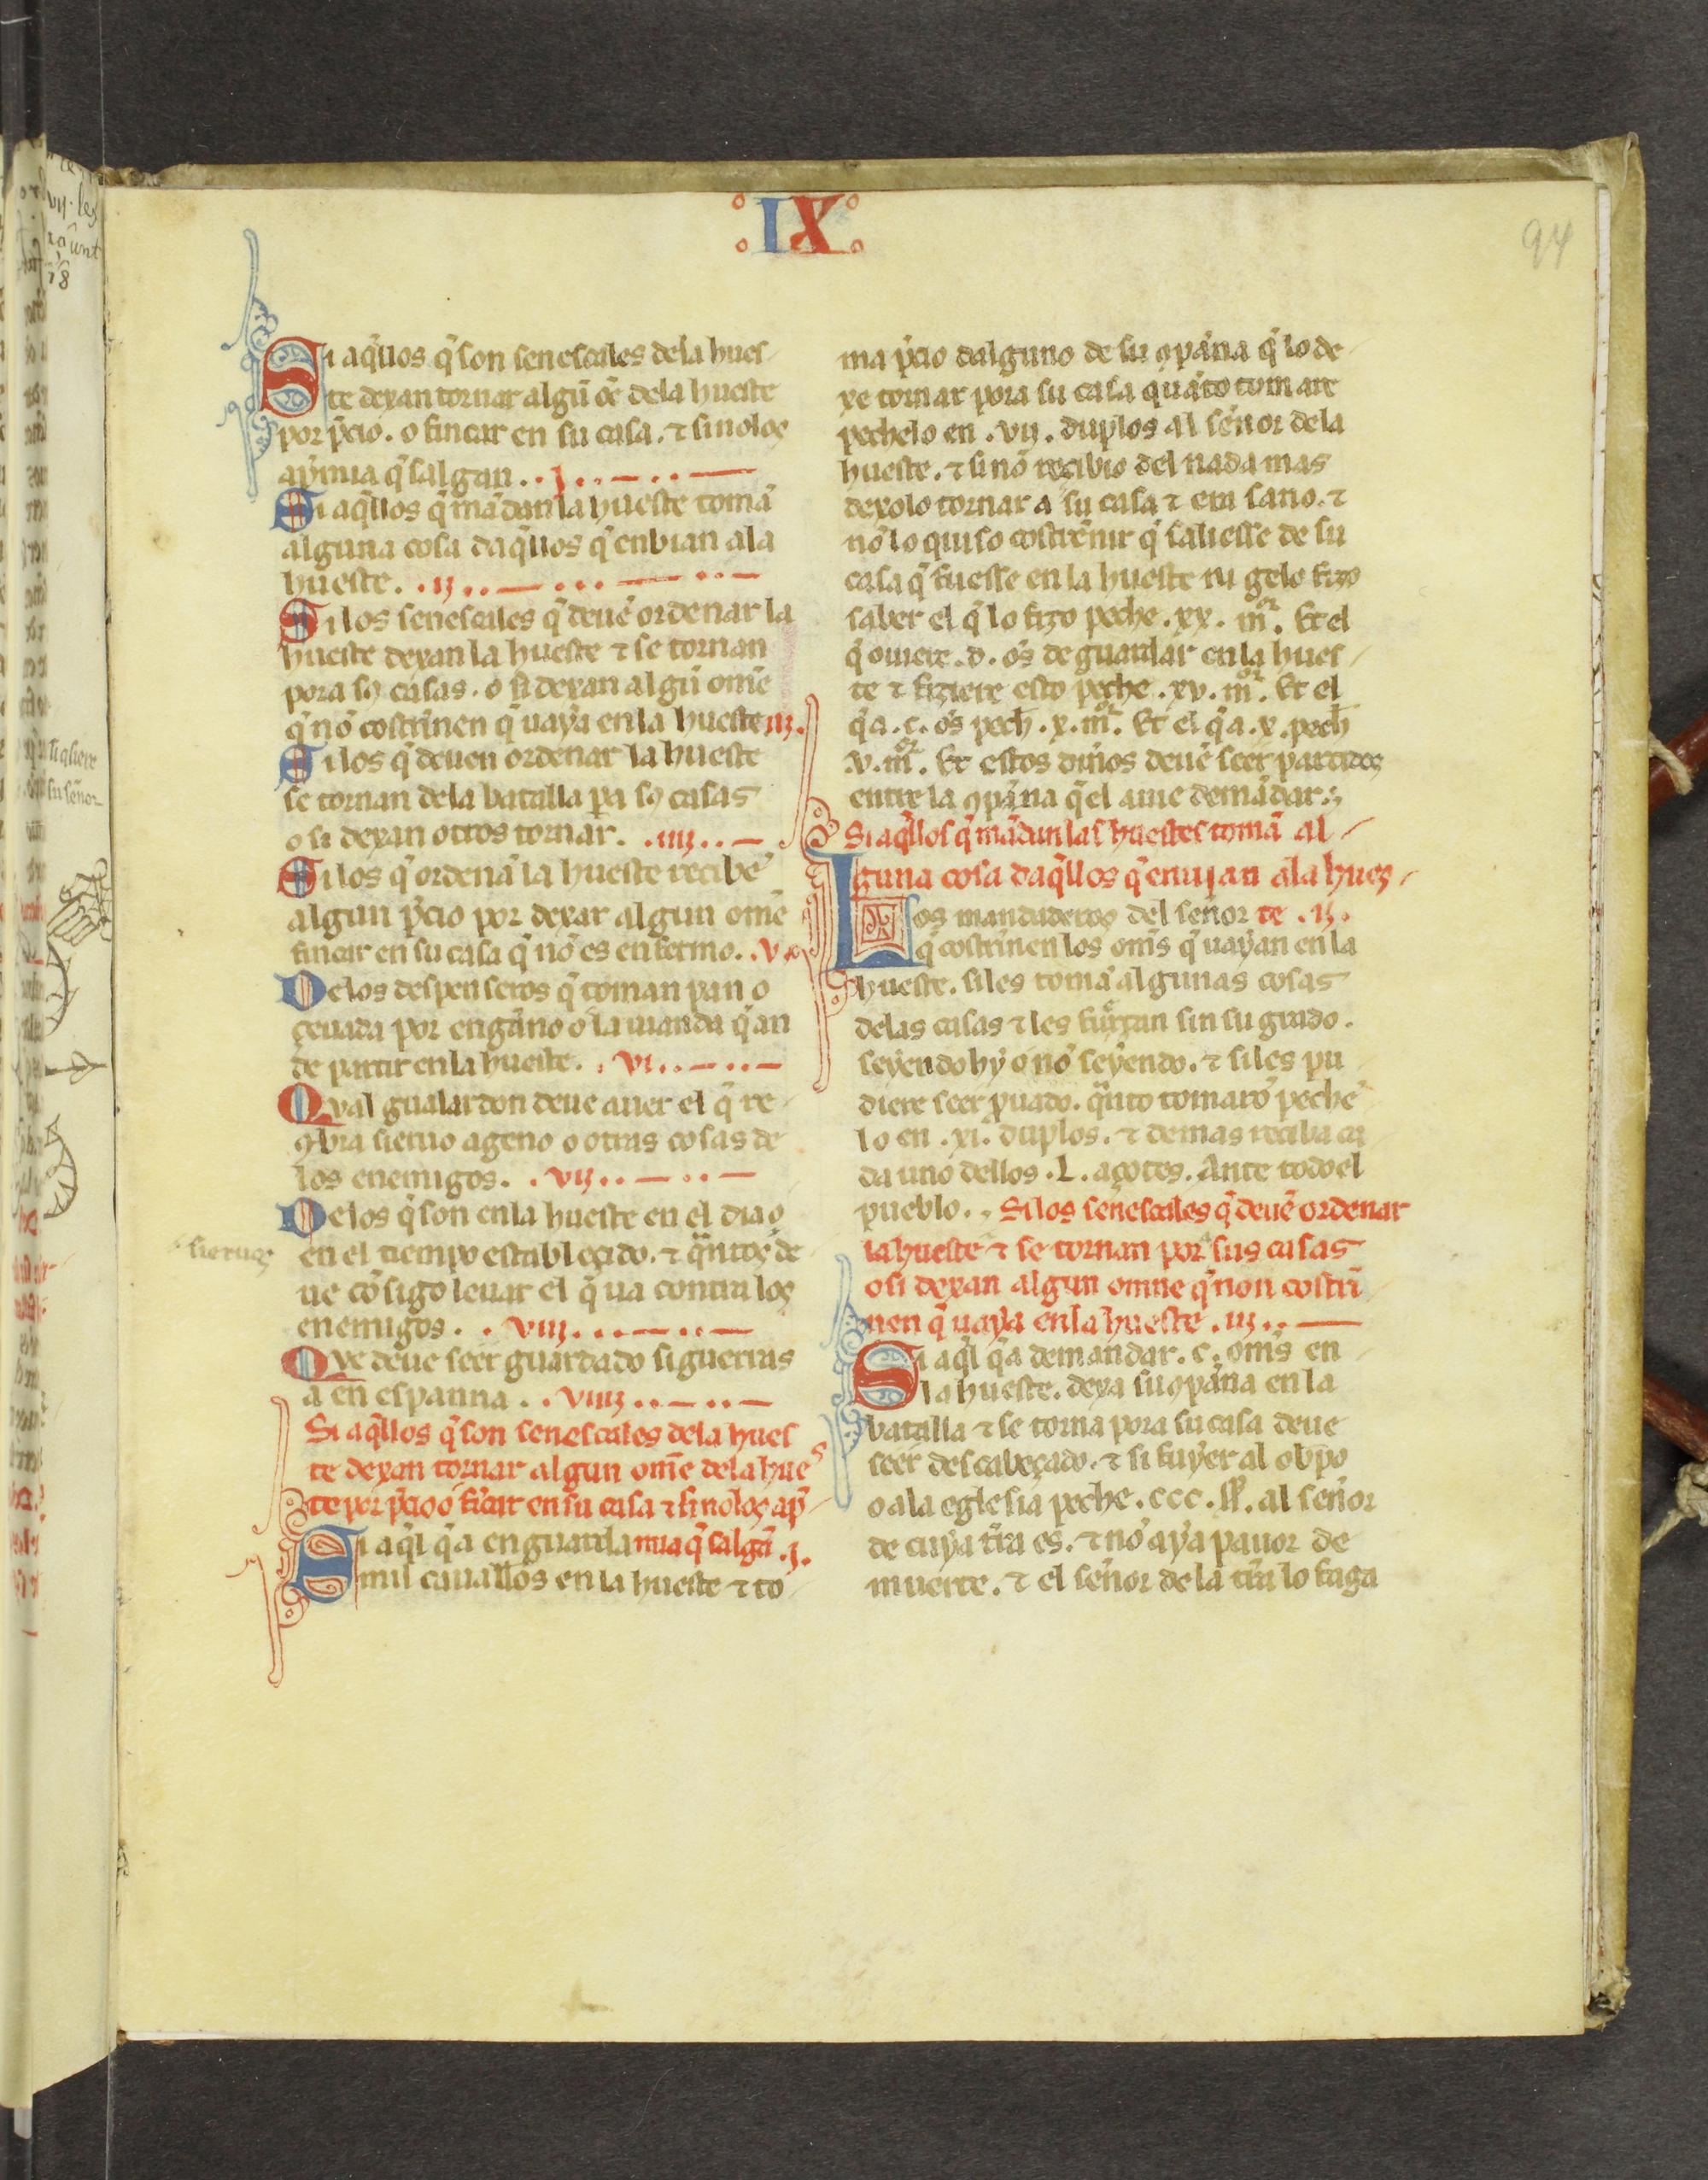 IX
94
Si aq̃llos q̃ son senescales dela hues
te dexan tornar algũ oẽ dela hueste
por p̃cio . o fincar en su casa . ⁊ si nolos
apmia q̃ salgan . . j . .
Si aq̃llos q̃ mãdan la hueste tomã
alguna cosa daq̃llos q̃ enbian ala
hueste . . ij . .
Si los senescales q̃ deuẽ ordenar la
hueste dexan la hueste ⁊ se tornan
pora sꝯ casas . o si dexan algũ om̃e
q̃ nõ costrinen q̃ uaya en la hueste iij .
Si los q̃ deuen ordenar la hueste
se tornan dela batalla pa sꝯ casas
o si dexan otros tornar . . iiij . .
Si los q̃ ordenã la hueste recibẽ
algun p̃cio por dexar algun om̃e
fincar en su casa q̃ nõ es enfermo . . v .
Delos despenseros q̃ toman pan o
çeuada por engãno o la uianda q̃ an
de partir en la hueste . . vi . .
Qval gualardon deue auer el q̃ re
ꝯbra sieruo ageno o otras cosas de
los enemigos . . vij . .
Delos q̃ son en la hueste en el dia o
en el tiempo estableçido . ⁊ q̃ntos de
sieruos
ue cõsigo leuar el q̃ ua contra los
enemigos . . viij . .
Qve deue seer guardado si guerras
a en espanna . . viiij . .
Si aq̃llos q̃ son senescales dela hues
te dexan tornar algun om̃e dela hues
te por p̃cio o fĩcar en su casa ⁊ si nolos ap
Si aq̃l q̃ a en guarda mia q̃ salgã . j .
mil cauallos en la hueste ⁊ to
ma p̃cio dalguno de su ꝯpãna q̃ lo de
xe tornar pora su casa quãto tomare
pechelo en . vij . duplos al sẽnor dela
hueste . ⁊ si nõ recibio del nada mas
dexolo tornar a su casa ⁊ era sano . ⁊
nõ lo quiso costrẽnir q̃ saliesse de su
casa q̃ fuesse en la hueste ni gelo fizo
saber el q̃ lo fizo peche . xx . mr̃ . Et el
q̃ ouiere . d . oẽs de guardar en la hues
te ⁊ fiziere esto peche . xv . mr̃ . Et el
q̃ a . c . oẽs pech̃ . x . mr̃ . Et el q̃ a . x . pech̃
v . mr̃ . Et estos dineros deuẽ seer partidos
entre la ꝯpãna q̃ el aiue demãdar
Si aq̃llos q̃ mãdan las huestes tomã al
guna cosa daq̃llos q̃ enuian ala hues
Los mandaderos del sẽnor te . ij .
q̃ costrinen los om̃s q̃ uayan en la
hueste . si les tomã algunas cosas
delas casas ⁊ les fuerçan sin su grado .
seyendo hy o nõ seyendo . ⁊ si les pu
diere seer p̃uado . q̃nto tomarõ pechẽ
lo en . xi . duplos . ⁊ demas reciba ca
da uno dellos . L . açotes . Ante todo el
pueblo . . Si los senescales q̃ deuẽ ordenar
la hueste ⁊ se tornan por sus casas
o si dexan algun omne q̃ non costrĩ
nen q̃ uaya en la hueste . iij . .
Si aq̃l q̃ a demandar . c . om̃s en
la hueste . dexa su ꝯpãna en la
batalla ⁊ se torna pora su casa deue
seer descabeçado . ⁊ si fuyer al obpo
o ala eglesia peche . ccc . ss̃ . al sẽnor
de cuya tr̃a es . ⁊ nõ aya pauor de
muerte . ⁊ el sẽnor de la tr̃a lo faga